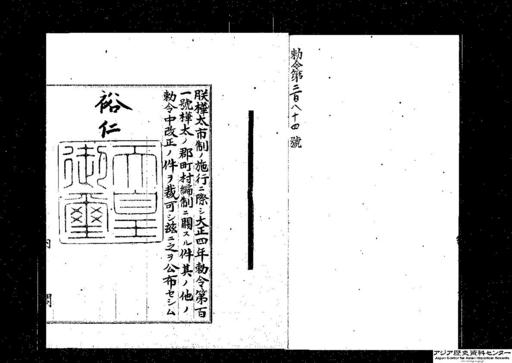 勅令第三百八十四號
朕樺太市制ノ施行ニ際シ大正四年勅令第百
一號樺太ノ郡町村編制ニ關スル件其ノ他ノ
勅令中改正ノ件ヲ裁可シ玆ニ之ヲ公布セシム
裕仁
天皇
御璽
内閣
アジア歴史資料センター
Japan Center for Asian Historical Records